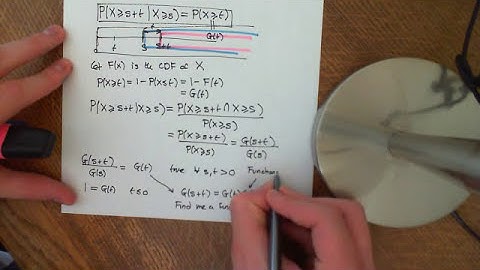 P(X⩾s+t | X⩾s) = P(X⩾t)
t
G(t)
t
s s+t
Let F(x) is the CDF of X
P(X⩾t) = 1 - P(X≤t) = 1 - F(t)
= G(t)
P(X⩾s+t | X⩾s) = P(X⩾s+t ∩ X⩾s) / P(X⩾s)
= P(X⩾s+t) / P(X⩾s) = G(s+t) / G(s)
G(s+t) / G(s) = G(t) true ∀ s,t>0 Functions
1 = G(t) t≤0 G(s+t) = G(t)
Find me a